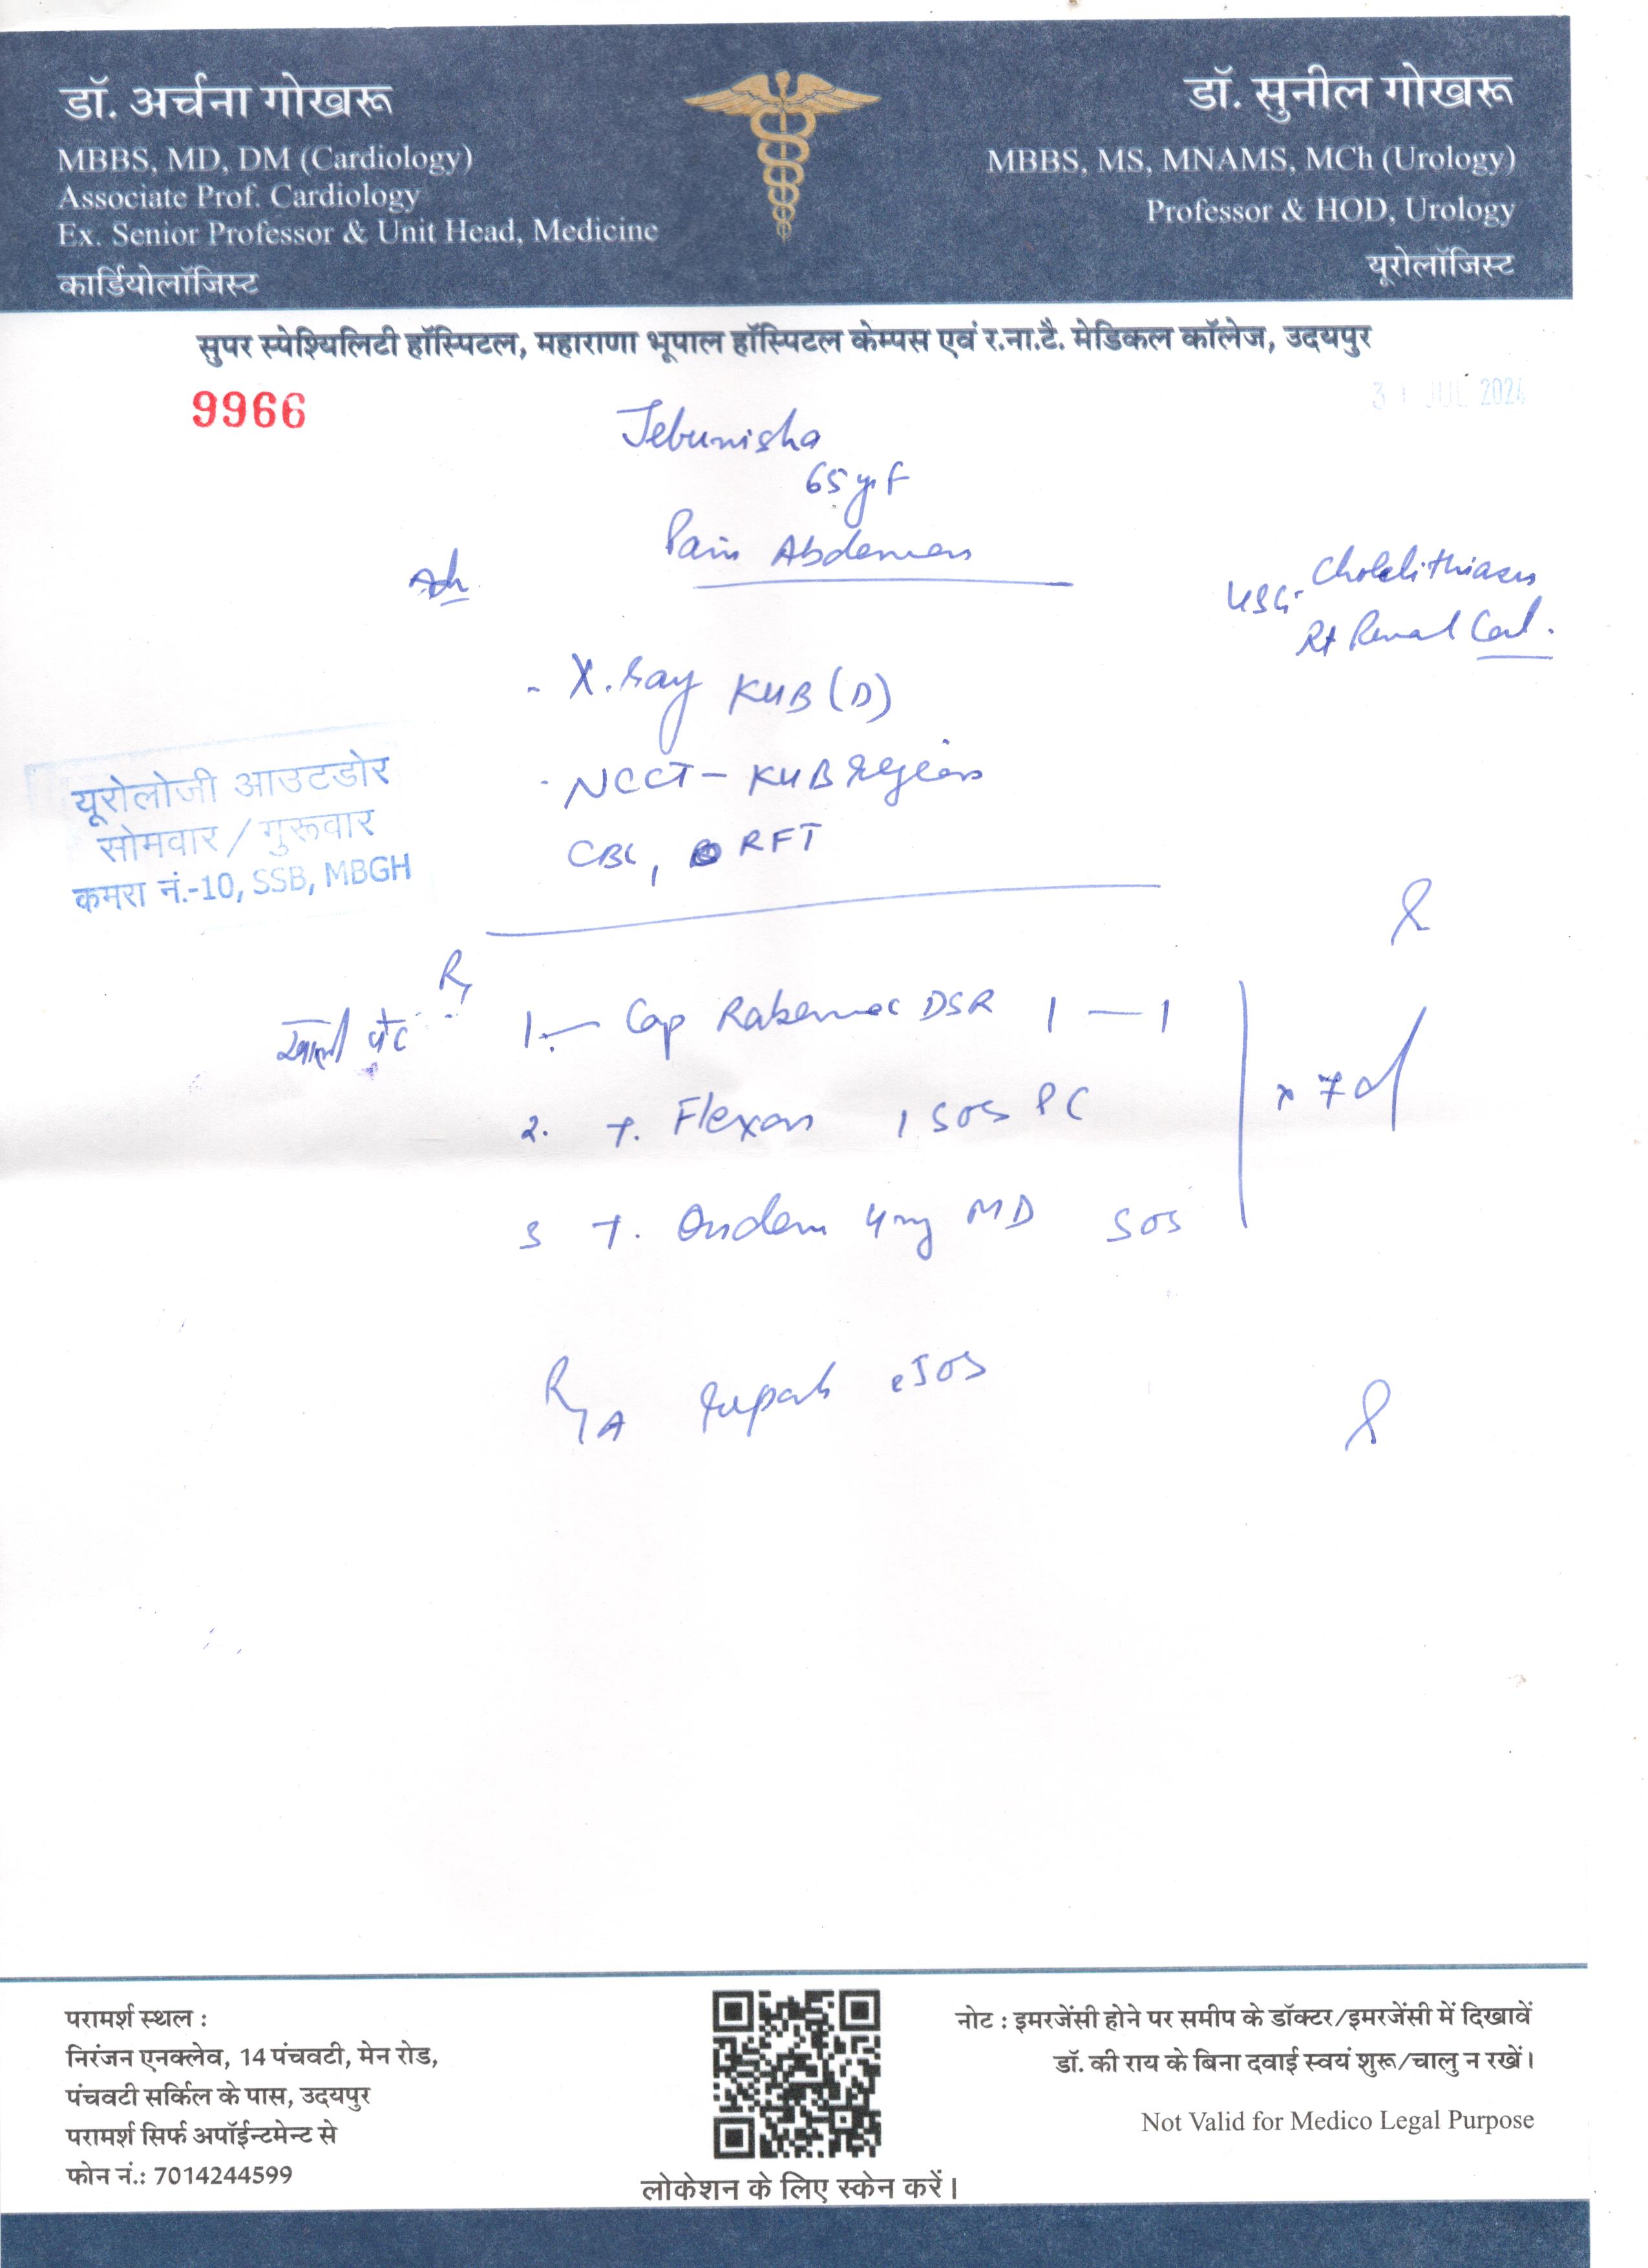 डॉ. अर्चना गोखरू
MBBS, MD, DM (Cardiology)
Associate Prof. Cardiology
Ex. Senior Professor & Unit Head, Medicine
कार्डियोलॉजिस्ट
डॉ. सुनील गोखरू
MBBS, MS, MNAMS, MCh (Urology)
Professor & HOD, Urology
यूरोलॉजिस्ट
सुपर स्पेश्यिलिटी हॉस्पिटल, महाराणा भूपाल हॉस्पिटल केम्पस एवं र.ना.टै. मेडिकल कॉलेज, उदयपुर
9966
31 JUL 2024
Jebunisha
65 yr F
Pain Abdomen
USG- Cholelithiasis
Rt Renal Cal.
- X.Ray KUB (D)
- NCCT - KUB Region
CBC, RFT
यूरोलोजी आउटडोर
सोमवार / गुरूवार
कमरा नं.-10, SSB, MBGH
Rx
खाली पेट
1. Cap DSR 1 — 1
2. T. Flexon 1 SOS PC
3 T. Ondem 4mg MD SOS
x 7 d
R/A SOS
परामर्श स्थल :
निरंजन एनक्लेव, 14 पंचवटी, मेन रोड,
पंचवटी सर्किल के पास, उदयपुर
परामर्श सिर्फ अपॉईन्टमेन्ट से
फोन नं.: 7014244599
लोकेशन के लिए स्केन करें।
नोट : इमरजेंसी होने पर समीप के डॉक्टर/इमरजेंसी में दिखावें
डॉ. की राय के बिना दवाई स्वयं शुरू/चालु न रखें।
Not Valid for Medico Legal Purpose